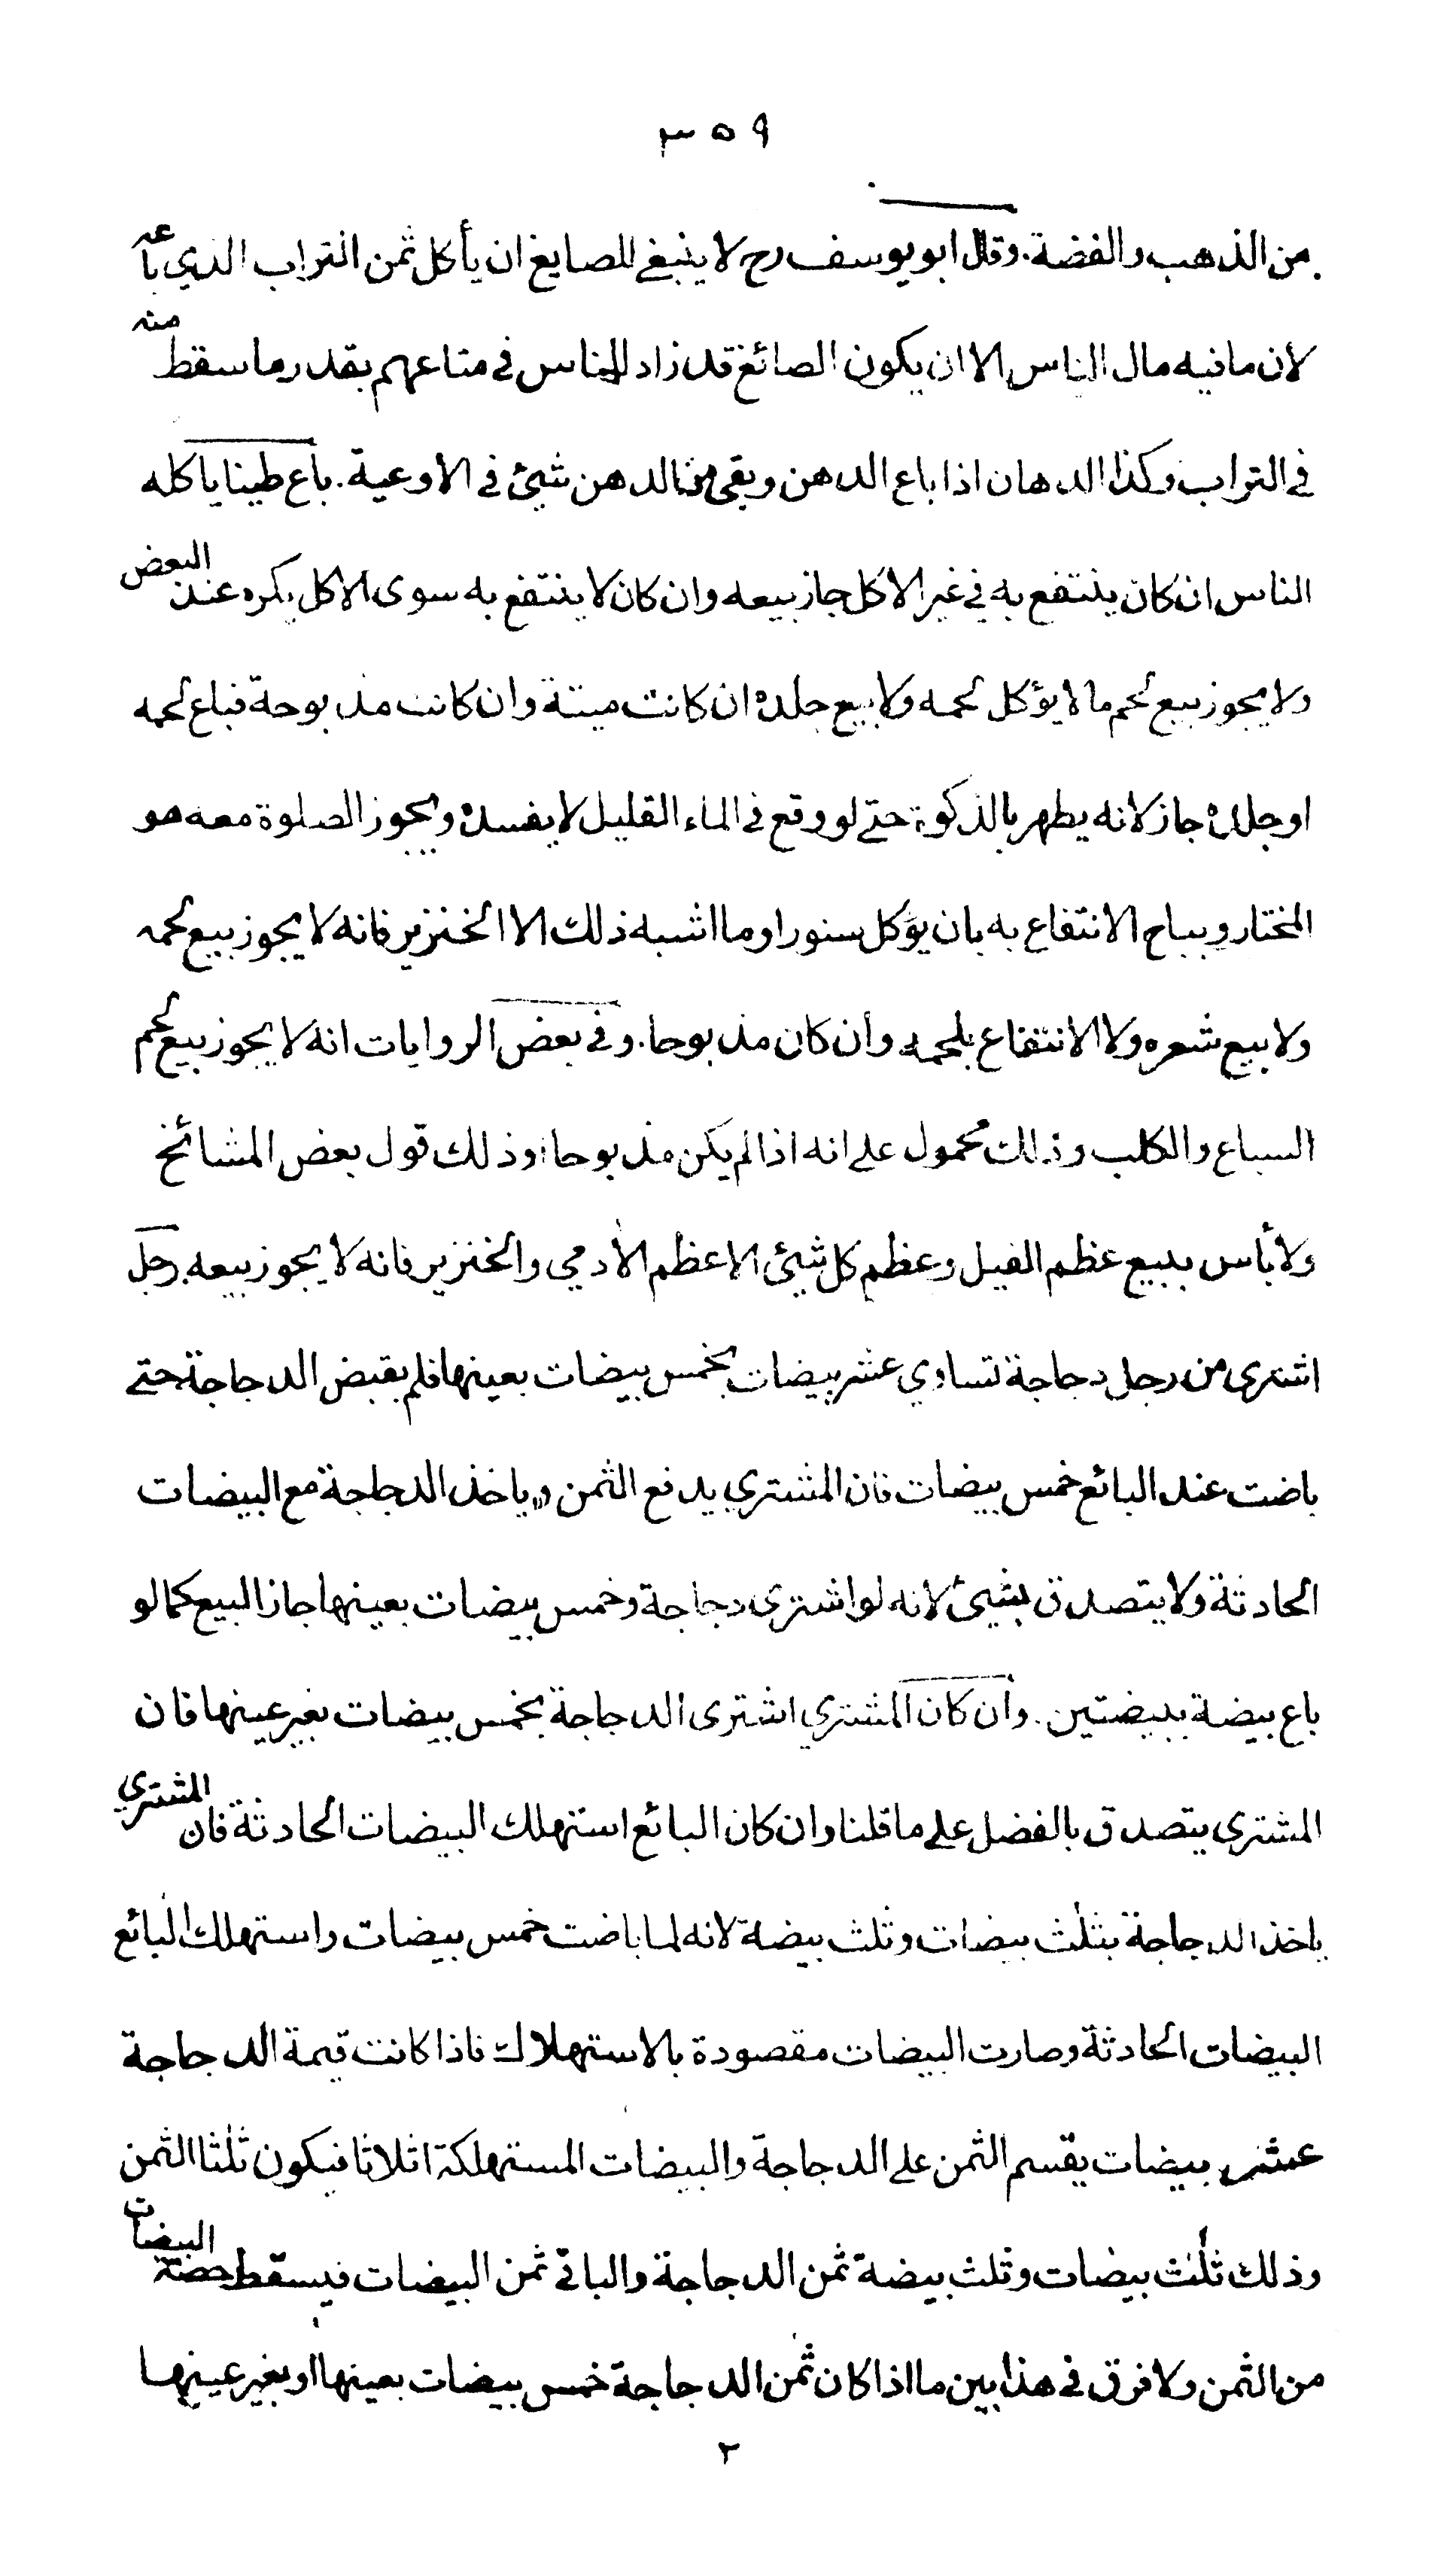 ٣٥٩
من الذهب والفضة. وقال ابو يوسف رح لا ينبغي للصايغ ان يأكل ثمن التراب الذي باعه
لان ما فيه مال الناس الا ان يكون الصائغ قد زاد للناس في متاعهم بقدر ما سقط منه
في التراب وكذا الدهان اذا باع الدهن وبقي من الدهن شيئ في الاوعية. باع طينا ياكله
الناس ان كان ينتفع به في غير الاكل جاز بيعه وان كان لا ينتفع به سوى الاكل يكره عند البعض
ولا يجوز بيع لحم ما لا يؤكل لحمه ولا بيع جلده ان كانت ميتة وان كانت مذبوحة فباع لحمه
او جلده جاز لانه يطهر بالذكوة حتى لو وقع في الماء القليل لا يفسده ويجوز الصلوة معه هو
المختار ويباح الانتفاع به بان يؤكل سنورا وما اشبه ذلك الا الخنزير فانه لا يجوز بيع لحمه
ولا بيع شعره ولا الانتفاع بلحمه وان كان مذبوحا. وفي بعض الروايات انه لا يجوز بيع لحم
السباع والكلب وذلك محمول على انه اذا لم يكن مذبوحا او ذلك قول بعض المشائخ
ولا بأس ببيع عظم الفيل وعظم كل شيئ الا عظم الأدمي والخنزير فانه لا يجوز بيعه. رجل
اشترى من رجل دجاجة تساوي عشر بيضات بخمس بيضات بعينها فلم يقبض الدجاجة حتى
باضت عند البائع خمس بيضات فان المشتري يدفع الثمن وياخذ الدجاجة مع البيضات
الحادثة ولا يتصدق بشيئ لانه لو اشترى دجاجة وخمس بيضات بعينها جاز البيع كما لو
باع بيضة ببيضتين. وان كان المشتري اشترى الدجاجة بخمس بيضات بغير عينها فان
المشتري يتصدق بالفضل على ما قلنا وان كان البائع استهلك البيضات الحادثة فان المشتري
ياخذ الدجاجة بثلث بيضات وثلث بيضة لانه لما باضت خمس بيضات واستهلك البائع
البيضات الحادثة وصارت البيضات مقصودة بالاستهلاك فاذا كانت قيمة الدجاجة
عشر بيضات يقسم الثمن على الدجاجة والبيضات المستهلكة اثلاثا فيكون ثلثا الثمن
وذلك ثلث بيضات وثلث بيضة ثمن الدجاجة والباقي ثمن البيضات فيسقط حصة البيضات
من الثمن ولا فرق في هذا بين ما اذا كان ثمن الدجاجة خمس بيضات بعينها او بغير عينها
٢